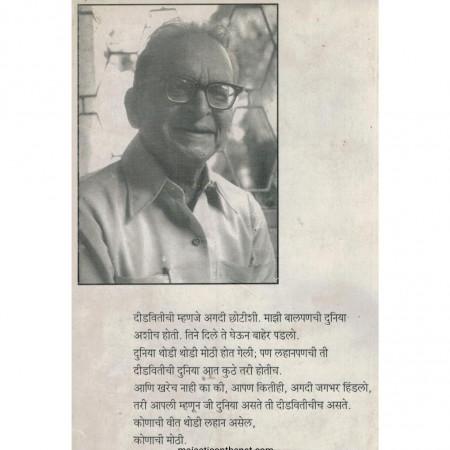 दीडवितीची म्हणजे अगदी छोटीशी. माझी बालपणची दुनिया
अशीच होती. तिने दिले ते घेऊन बाहेर पडलो.
दुनिया थोडी थोडी मोठी होत गेली; पण लहानपणची ती
दीडवितीची दुनिया आत कुठे तरी होतीच.
आणि खरेच नाही का की, आपण कितीही, अगदी जगभर हिंडलो,
तरी आपली म्हणून जी दुनिया असते ती दीडवितीचीच असते.
कोणाची वीत थोडी लहान असेल,
कोणाची मोठी.
majesticonthenet.com